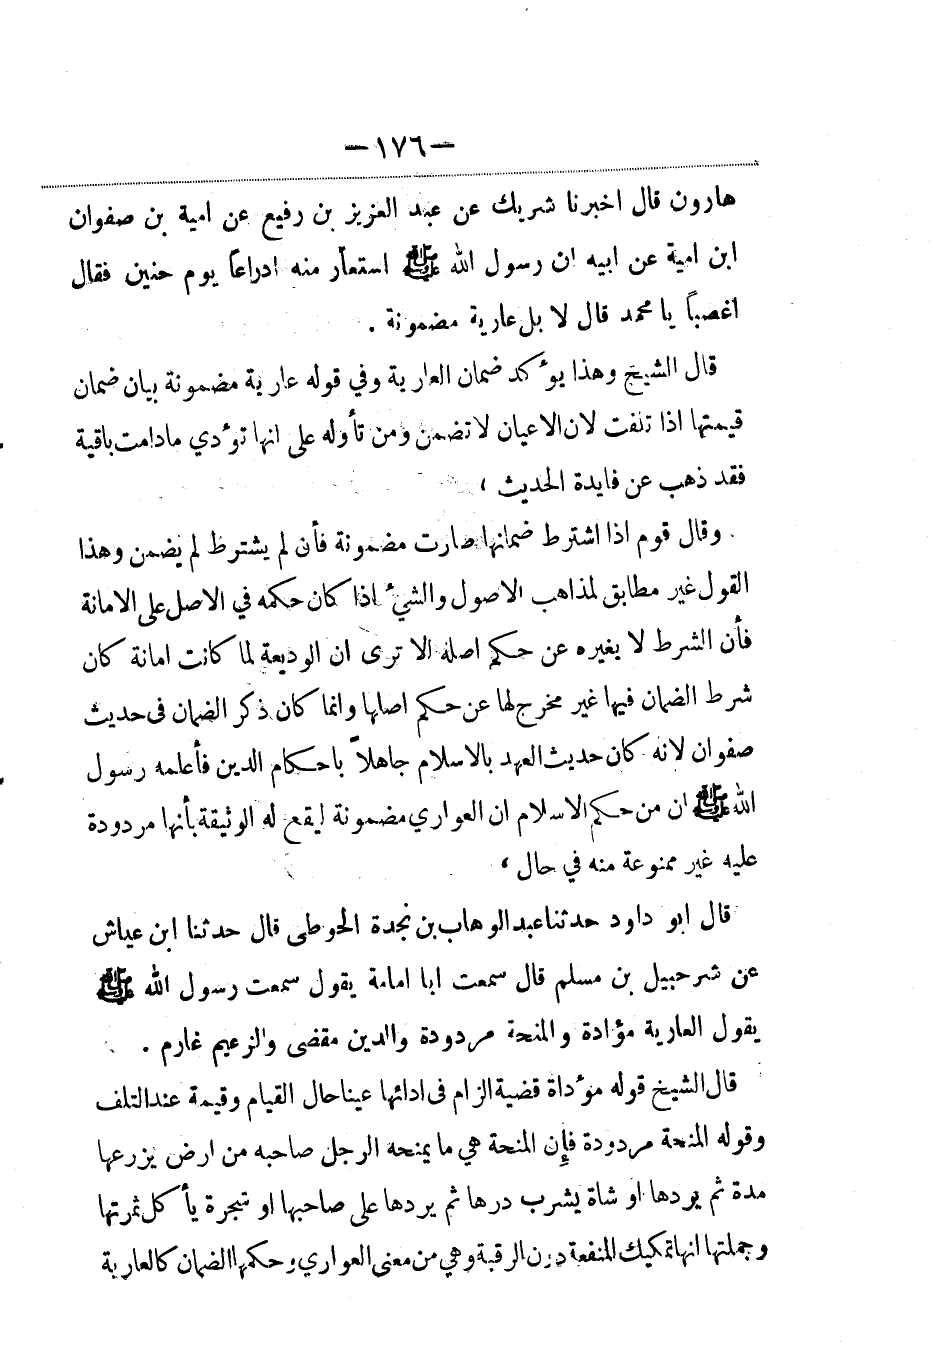 —١٧٦—
هارون قال اخبرنا شريك عن عبد العزيز بن رفيع عن امية بن صفوان
ابن امية عن ابيه ان رسول الله ﷺ استعار منه ادراعاً يوم حنين فقال
اغصباً يا محمد قال لا بل عارية مضمونة .
قال الشيخ وهذا يؤكد ضمان العارية وفي قوله عارية مضمونة بيان ضمان
قيمتها اذا تلفت لان الاعيان لا تضمن ومن تأوله على انها تؤدي مادامت باقية
فقد ذهب عن فايدة الحديث ،
وقال قوم اذا اشترط ضمانها صارت مضمونة فأن لم يشترط لم يضمن وهذا
القول غير مطابق لمذاهب الاصول والشيء اذا كان حكمه في الاصل على الامانة
فأن الشرط لا يغيره عن حكم اصله الا ترى ان الوديعة لما كانت امانة كان
شرط الضمان فيها غير مخرج لها عن حكم اصلها وانما كان ذكر الضمان فى حديث
صفوان لانه كان حديث العهد بالاسلام جاهلاً باحكام الدين فأعلمه رسول
الله ﷺ ان من حكم الاسلام ان العواري مضمونة ليقع له الوثيقة بأنها مردودة
عليه غير ممنوعة منه في حال ،
قال ابو داود حدثنا عبد الوهاب بن نجدة الحوطى قال حدثنا ابن عياش
عن شرحبيل بن مسلم قال سمعت ابا امامة يقول سمعت رسول الله ﷺ
يقول العارية مؤادة والمنحة مردودة والدين مقضى والزعيم غارم .
قال الشيخ قوله مؤداة قضية الزام فى ادائها عينا حال القيام وقيمة عند التلف
وقوله المنحة مردودة فإن المنحة هي ما يمنحه الرجل صاحبه من ارض يزرعها
مدة ثم يردها او شاة يشرب درها ثم يردها على صاحبها او شجرة يأكل ثمرتها
وجملتها انها تمكيك المنفعة دون الرقبة وهي من معنى العواري وحكمها الضمان كالعارية